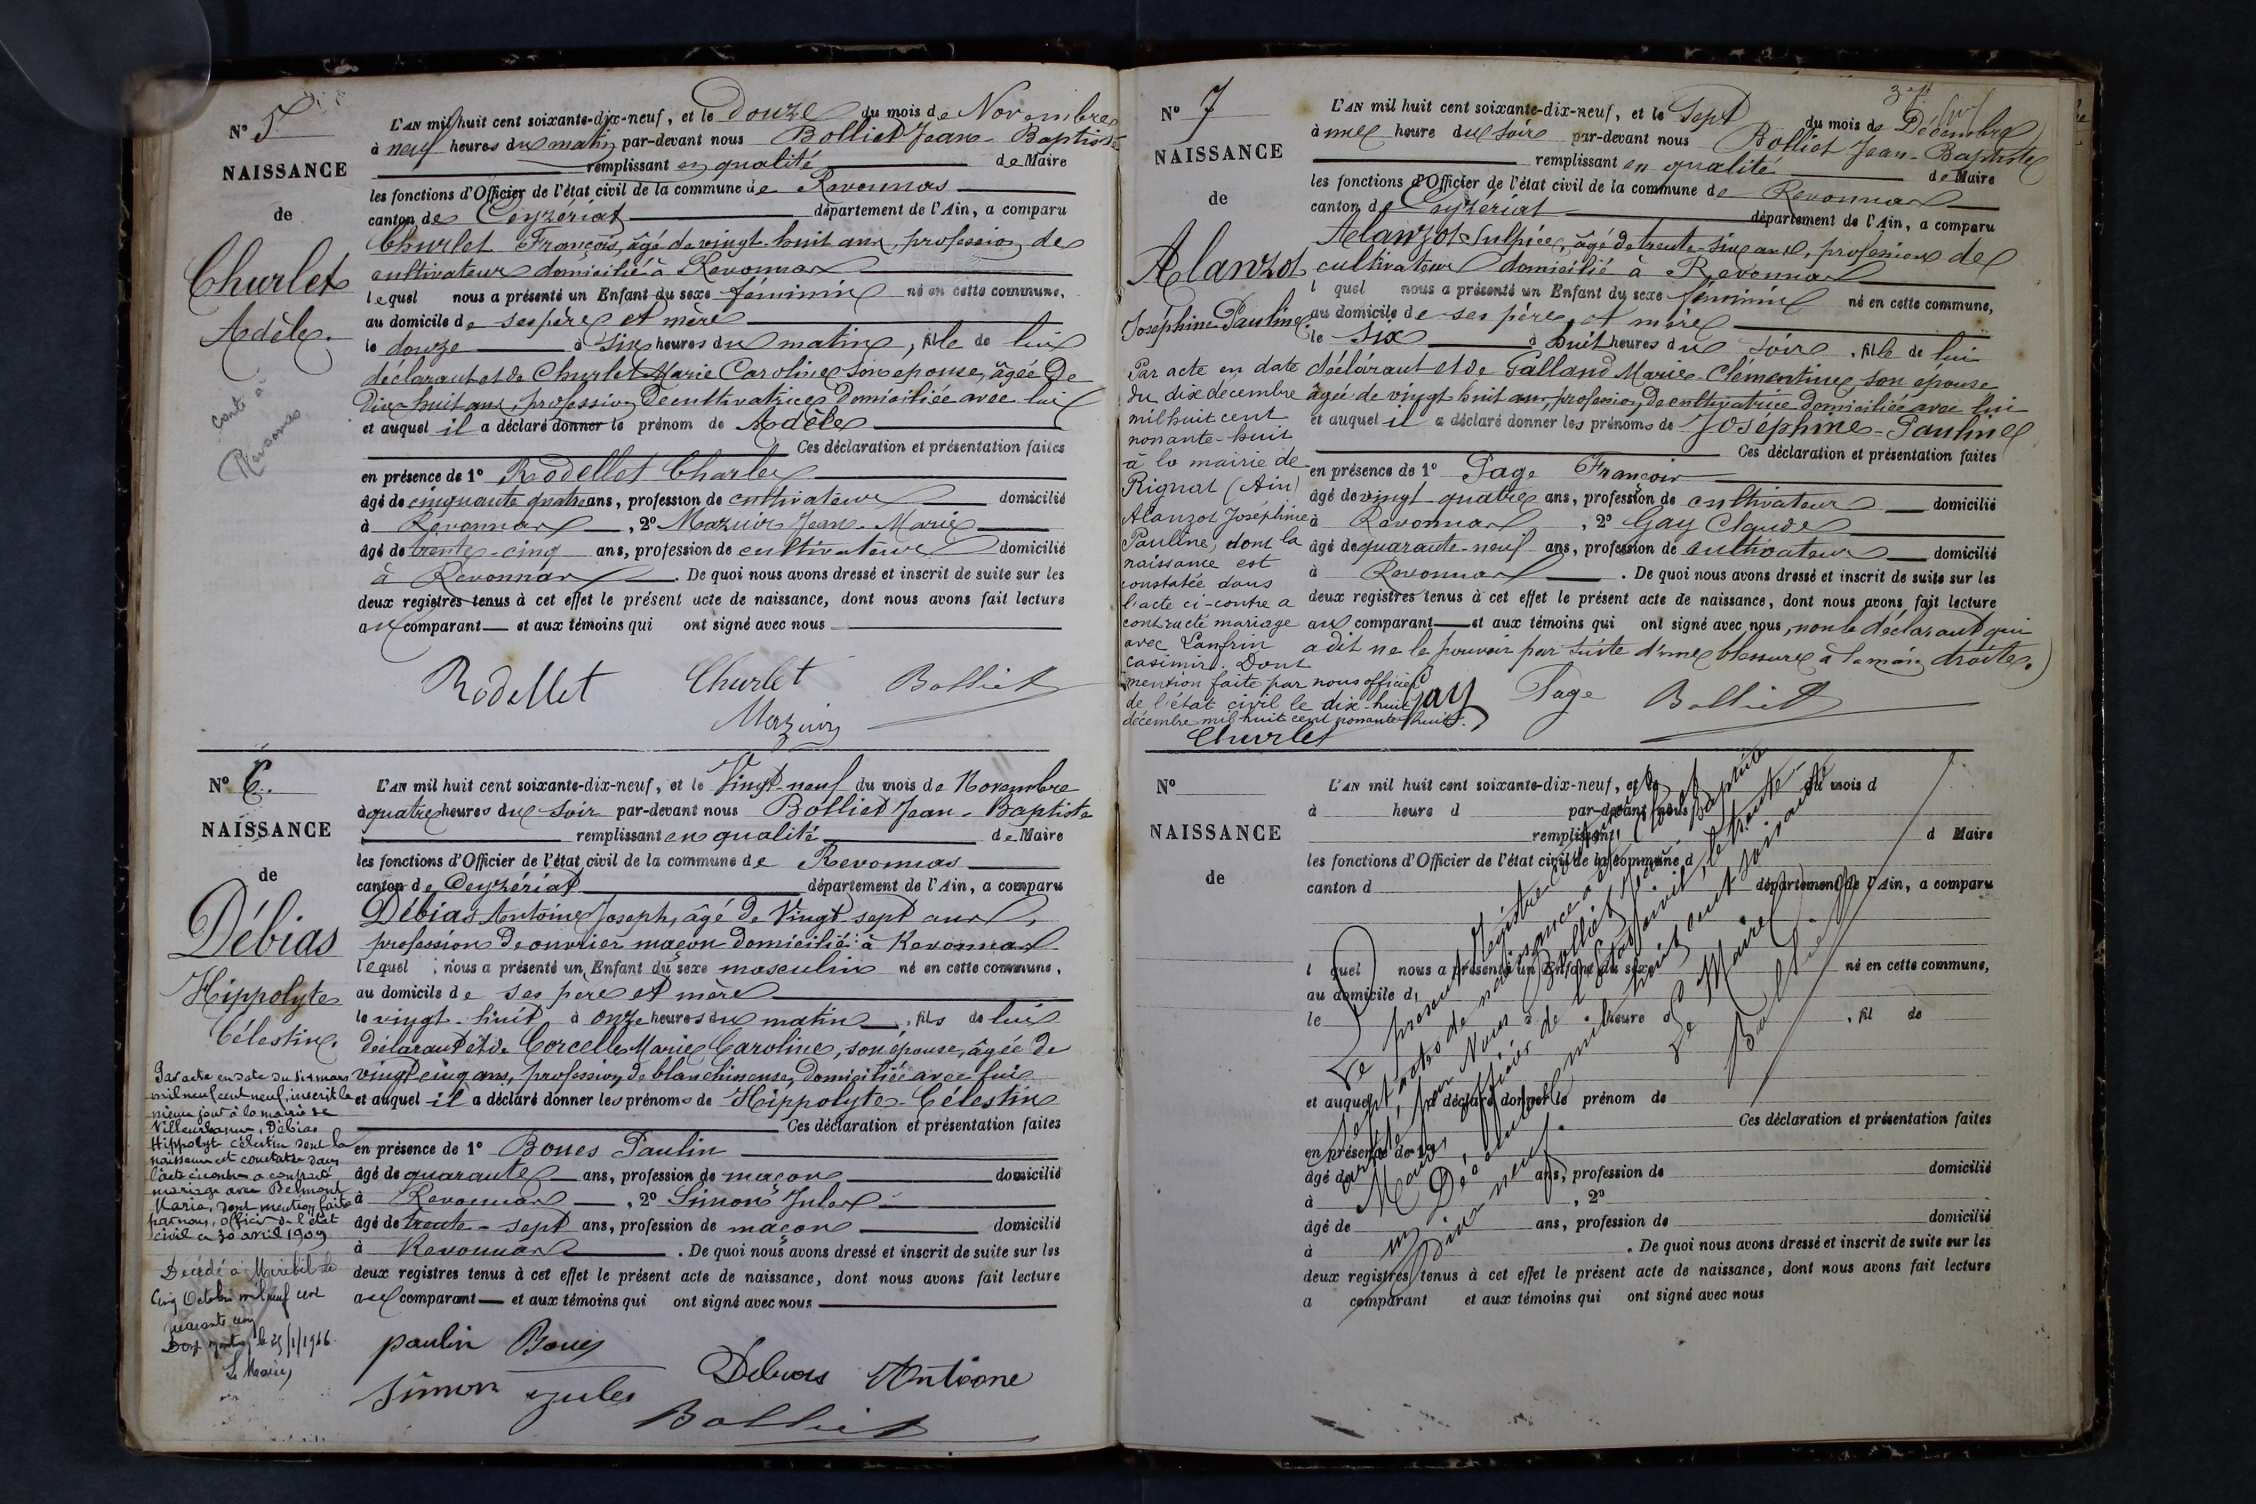 N° 5
NAISSANCE
de
Churlet
Adèle.
Revonnas
L'AN mil huit cent soixante-dix-neuf, et le Douze du mois de Novembre
à neuf heures du matin par-devant nous Bolliet Jean-Baptiste
remplissant en qualité de Maire
les fonctions d'Officier de l'état civil de la commune de Revonnas
canton de Ceyzériat département de l'Ain, a comparu
Churlet François, âgé de vingt-huit ans, profession de
cultivateur domicilié à Revonnas
lequel nous a présenté un Enfant du sexe féminin né en cette commune,
au domicile de ses père et mère
le douze à six heures du matin, fille de lui
déclarant et de Churlet Marie Caroline son épouse, âgée De
Dix-huit ans, profession De cultivatrice Domiciliée avec lui
et auquel il a déclaré donner le prénom de Adèle
Ces déclaration et présentation faites
en présence de 1° Rodellet Charles
âgé de cinquante quatre ans, profession de cultivateur domicilié
à Revonnas, 2° Mazuir Jean-Marie
âgé de trente-cinq ans, profession de cultivateur domicilié
à Revonnas. De quoi nous avons dressé et inscrit de suite sur les
deux registres tenus à cet effet le présent acte de naissance, dont nous avons fait lecture
aux comparant et aux témoins qui ont signé avec nous
Rodellet Churlet Bolliet
Mazuir
N° 6.
NAISSANCE
de
Débias
Hippolyte
Célestin.
Par acte en date du six mars
mil neuf cent neuf, inscrit le
même jour à la mairie de
Villeurbanne, Débias
Hippolyte célestin dont la
naissance est constatée dans
l'acte ci-contre a contracté
mariage avec Belmont
Maria, dont mention faite
par nous, officier de l'état
civil ce 30 avril 1909
Décédé à Miribel le
Cinq Octobre mil neuf cent
quarante cinq
Le Maire,
L'AN mil huit cent soixante-dix-neuf, et le Vingt-neuf du mois de Novembre
à quatre heures du soir par-devant nous Bolliet Jean-Baptiste
remplissant en qualité de Maire
les fonctions d'Officier de l'état civil de la commune de Revonnas
canton de Ceyzériat département de l'Ain, a comparu
Débias Antoine Joseph, âgé de Vingt-sept ans,
profession De ouvrier maçon domicilié à Revonnas
lequel nous a présenté un Enfant du sexe masculin né en cette commune,
au domicile de ses père et mère
le vingt-huit à onze heures du matin, fils de lui
déclarant et de Corcelle Marie Caroline, son épouse, âgée De
vingt-cinq ans, profession de blanchisseuse, Domiciliée avec lui
et auquel il a déclaré donner les prénoms de Hippolyte-Célestin
Ces déclaration et présentation faites
en présence de 1° Boues Paulin
âgé de quarante ans, profession de maçon domicilié
à Revonnas, 2° Simon Jules
âgé de trente-sept ans, profession de maçon domicilié
à Revonnas. De quoi nous avons dressé et inscrit de suite sur les
deux registres tenus à cet effet le présent acte de naissance, dont nous avons fait lecture
aux comparant et aux témoins qui ont signé avec nous
paulin Boues
Simon jules Debias Antoine
Bolliet
N° 7
NAISSANCE
de
Alanzot
Joséphine-Pauline
Par acte en date
du dix décembre
mil huit cent
nonante-huit
à la mairie de
Rignat (Ain)
Alanzot Joséphine
Pauline, dont la
naissance est
constatée dans
l'acte ci-contre a
contracté mariage
avec Lanfrin
casimir. Dont
mention faite par nous officier
de l'état civil le dix-huit
décembre mil huit cent nonante huit.
Churlet
L'AN mil huit cent soixante-dix-neuf, et le Sept du mois de Décembre
à une heure du soir par-devant nous Bolliet Jean-Baptiste
remplissant en qualité de Maire
les fonctions d'Officier de l'état civil de la commune de Revonnas
canton de Ceyzériat département de l'Ain, a comparu
Alanzot Sulpice, âgé de trente-six ans, profession de
cultivateur domicilié à Revonnas
l quel nous a présenté un Enfant du sexe féminin né en cette commune,
au domicile de ses père et mère
le six à huit heures du soir, fille de lui
déclarant et de Galland Marie-Clémentine, son épouse
âgée de vingt huit ans, profession De cultivatrice Domiciliée avec lui
et auquel il a déclaré donner les prénoms de Joséphine-Pauline
Ces déclaration et présentation faites
en présence de 1° Page François
âgé de vingt quatre ans, profession de cultivateur domicilié
à Revonnas, 2° Gay Claude
âgé de quarante-neuf ans, profession de cultivateur domicilié
à Revonnas. De quoi nous avons dressé et inscrit de suite sur les
deux registres tenus à cet effet le présent acte de naissance, dont nous avons fait lecture
aux comparant et aux témoins qui ont signé avec nous, non le déclarant qui
a dit ne le pouvoir par suite d'une blessure à la main droite.
Gay Page Bolliet
N°
NAISSANCE
de
L'AN mil huit cent soixante-dix-neuf, et le du mois d
à heure d par-devant nous
remplissant d Maire
les fonctions d'Officier de l'état civil de la commune d
canton d département de l'Ain, a comparu
l quel nous a présenté un Enfant du sexe né en cette commune,
au domicile d
le à heure d, fil de
et auquel a déclaré donner le prénom de
Ces déclaration et présentation faites
en présence de 1°
âgé de ans, profession de domicilié
à, 2°
âgé de ans, profession de domicilié
à. De quoi nous avons dressé et inscrit de suite sur les
deux registres tenus à cet effet le présent acte de naissance, dont nous avons fait lecture
a comparant et aux témoins qui ont signé avec nous
Le présent Registre
sept actes de naissance a été clos et
arrêté, par Nous Bolliet Jean-Baptiste
Maire, officier de l'état civil, le trente-
un Décembre mil huit cent soixante
Dix neuf.
Le Maire
Bolliet